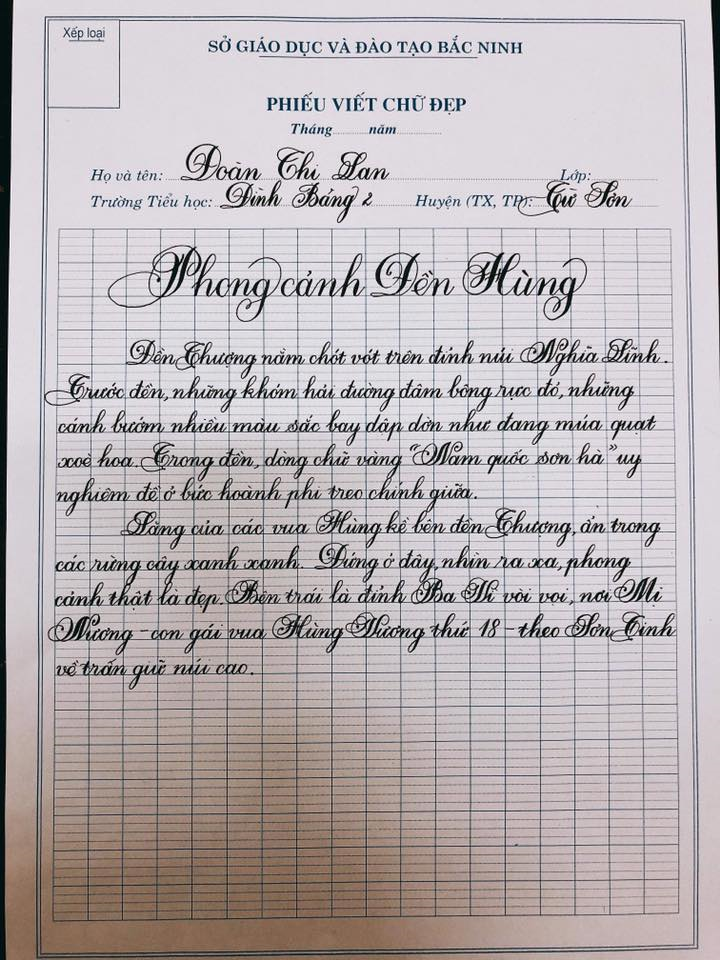 Xếp loại
SỞ GIÁO DỤC VÀ ĐÀO TẠO BẮC NINH
PHIẾU VIẾT CHỮ ĐẸP
Tháng............năm..............
Họ và tên: Đoàn Thị Lan Lớp:
Trường Tiểu học: Đình Bảng 2 Huyện (TX, TP): Từ Sơn
Phong cảnh Đền Hùng
Đền Thượng nằm chót vót trên đỉnh núi Nghĩa Lĩnh.
Trước đền, những khóm hải đường đâm bông rực đỏ, những
cánh bướm nhiều màu sắc bay dập dờn như đang múa quạt
xoè hoa. Trong đền, dòng chữ vàng "Nam quốc sơn hà" uy
nghiêm đề ở bức hoành phi treo chính giữa.
Lăng của các vua Hùng kề bên đền Thượng, ẩn trong
các rừng cây xanh xanh. Đứng ở đây, nhìn ra xa, phong
cảnh thật là đẹp. Bên trái là đỉnh Ba Vì vòi vọi, nơi Mị
Nương - con gái vua Hùng Vương thứ 18 - theo Sơn Tinh
về trấn giữ núi cao.